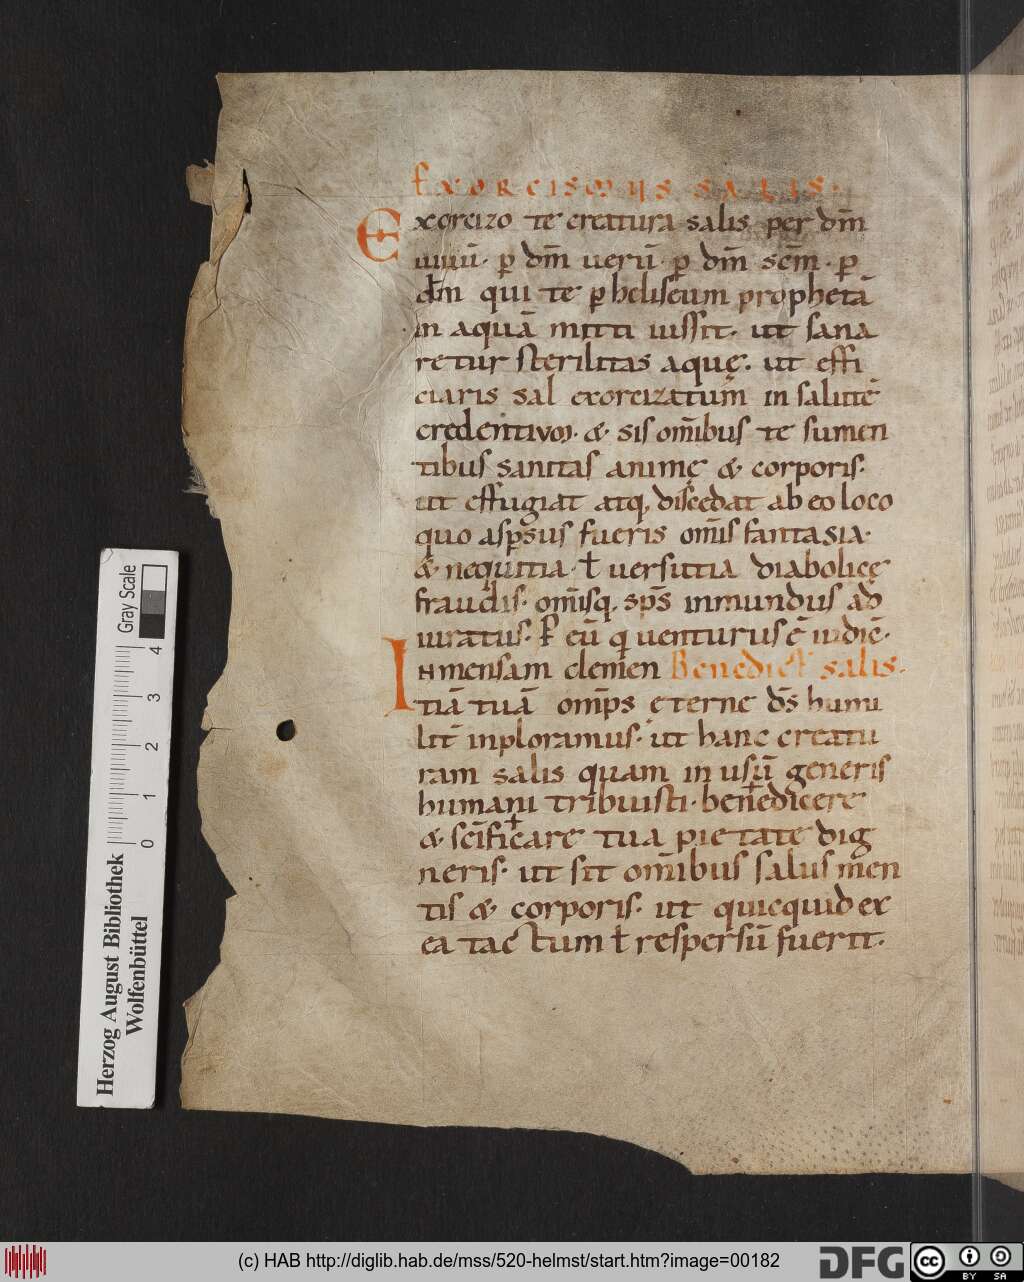 EXORCISMUS SALIS.
Exorcizo te creatura salis per dm̄
uiuū. ꝑ dm̄ uerū. ꝑ dm̄ sc̄m. ꝑ
dm̄ qui te ꝑ heliseum prophetā
in aquā mitti iussit. ut sana
retur sterilitas aquę. ut effi
ciaris sal exorcizatum in salutē
credentium. & sis om̄ibus te sumen
tibus sanitas animę & corporis.
ut effugiat atq; discedat ab eo loco
quo aspsus fueris om̄is fantasia.
& nequitia. ł uersutia diabolicę
fraudis. om̄isq; sp̄s inmundus ad
iuratus. P eū q uenturus ē iudiē.
Inmensam clemen Benedict salis.
tiā tuā om̄ps eterne d̄s humi
lit̄ inploramus. ut hanc creatu
ram salis quam in usū generis
humani tribuisti. bene†dicere
& sc̄ifi†care tua pietate dig
neris. ut sit om̄ibus salus men
tis & corporis. ut quicquid ex
ea tactum ł respersū fuerit.
Gray Scale
4
3
2
1
0
Herzog August Bibliothek
Wolfenbüttel
(c) HAB http://diglib.hab.de/mss/520-helmst/start.htm?image=00182
DFG
cc BY SA